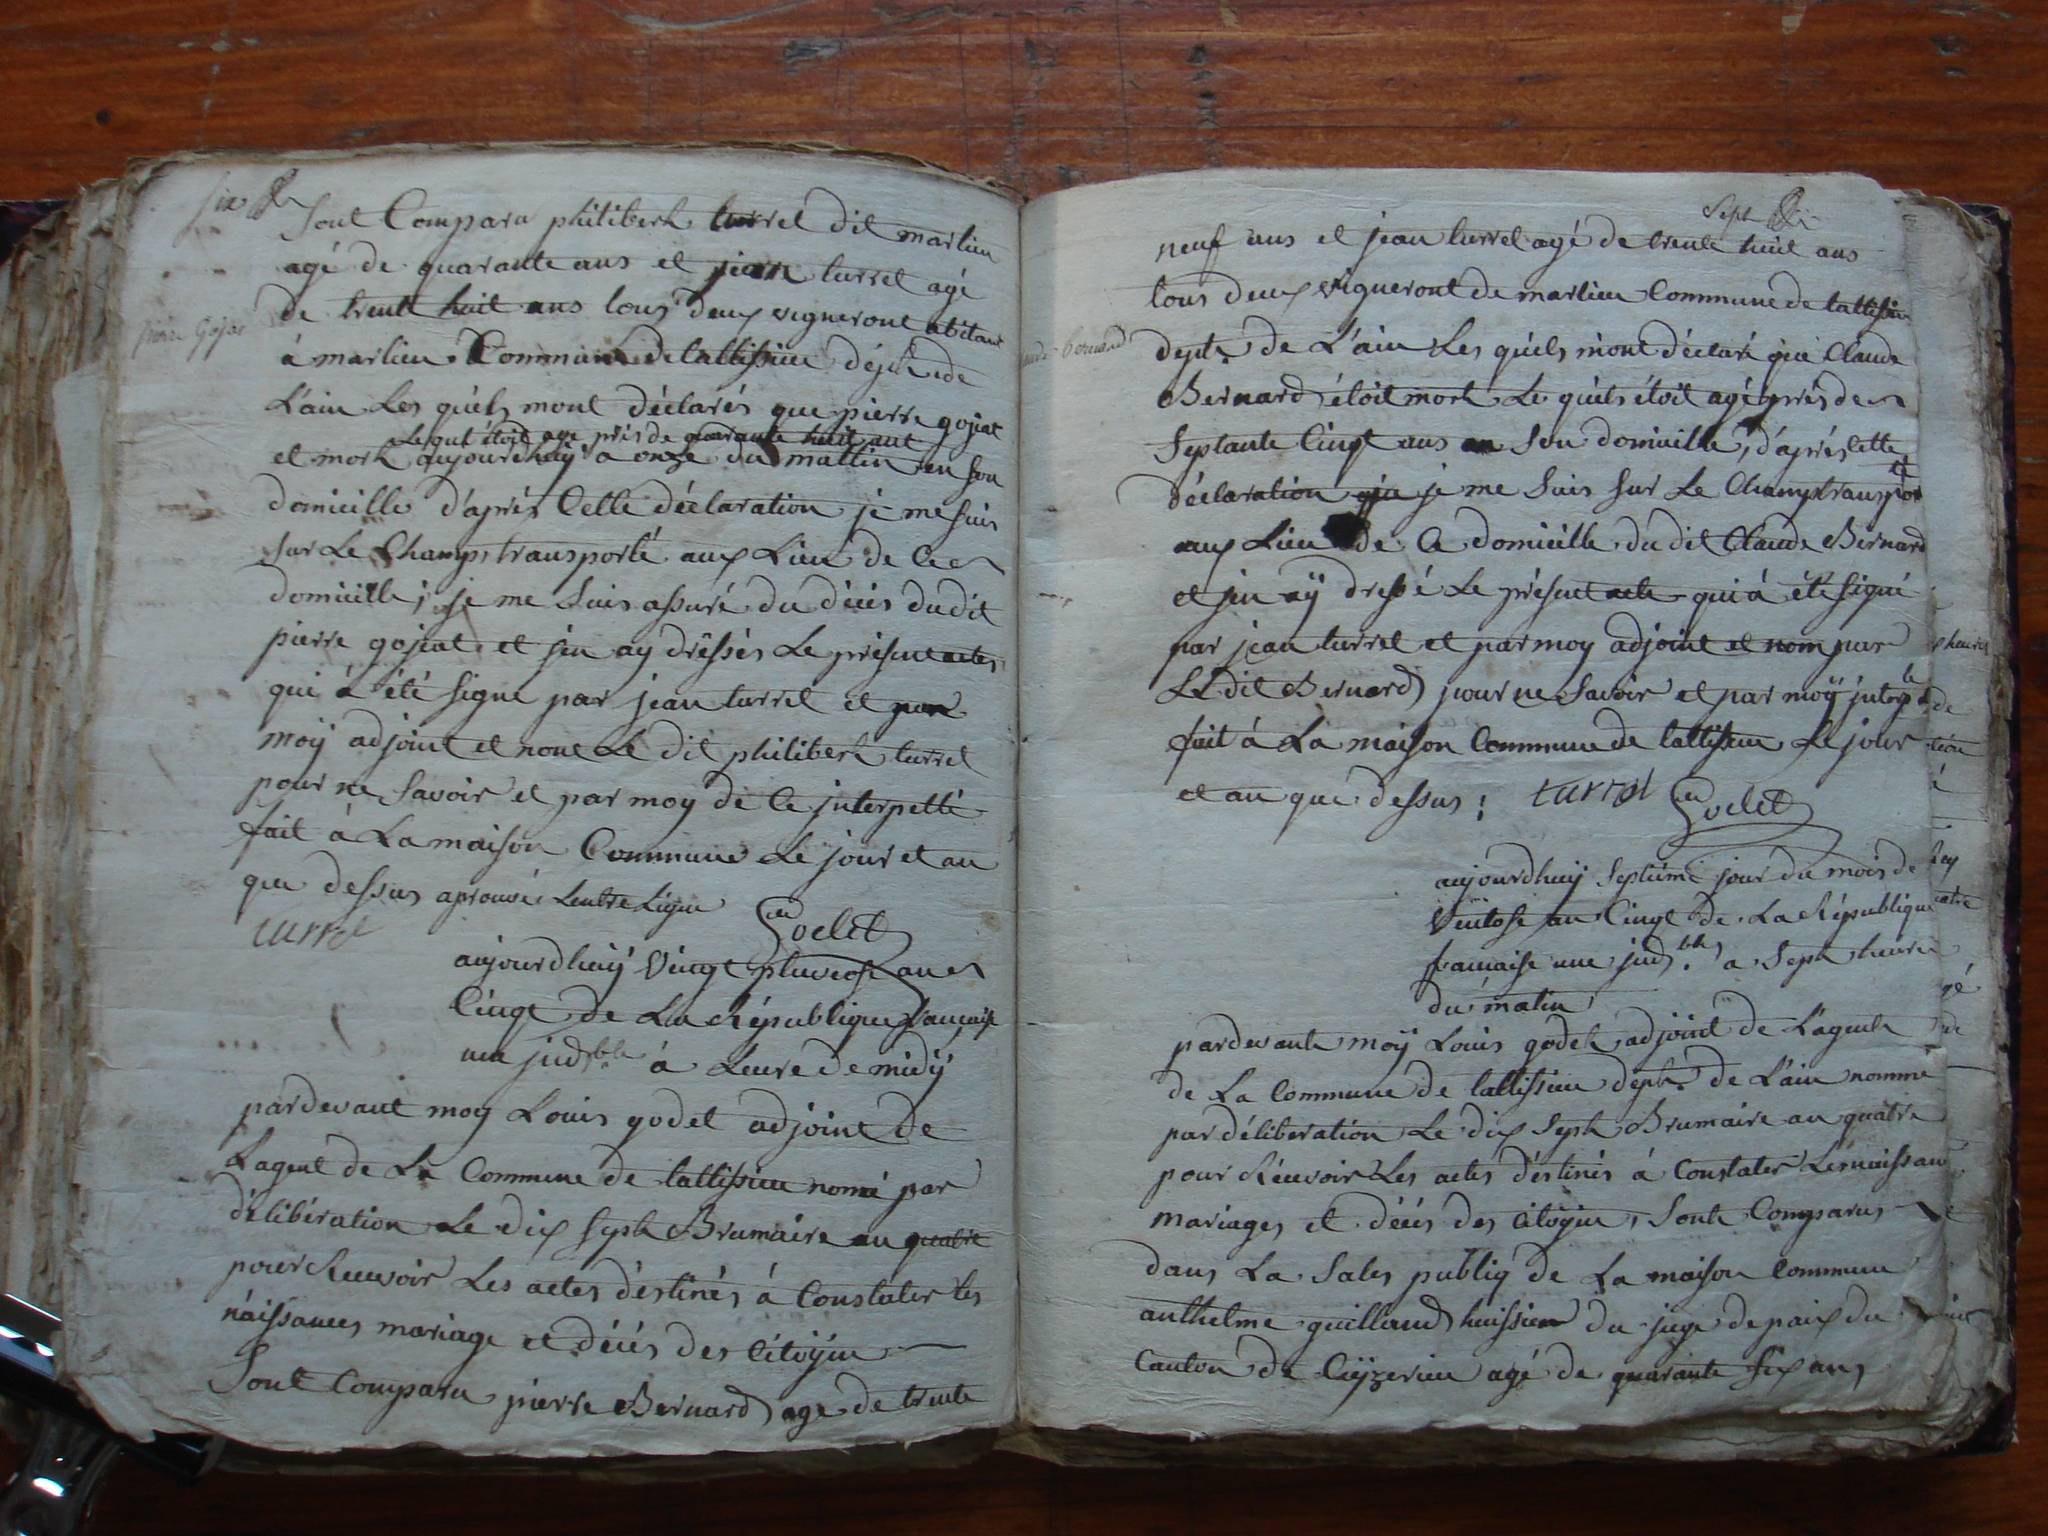 six
Sont Comparu philibert turrel dit marlieu
agé de quarante ans et jean turrel agé
de trente huit ans tous deux vigneront abitant
pierre Gojat
à marlieu Commune de tallissieu dépt de
L'ain Les quels mont déclarés que pierre gojat
Le quel étoit age près de quarante huit ans
et mort aujourdhuy a onze du mattin en son
domicille d'aprés Cette déclaration je me suis
sur Le Champs transporté aux Lieu de Ce
domicille ; je me suis assuré du décés du dit
pierre gojat et jen ay dressés Le présent actes
qui à été signe par jean turrel et par
moÿ adjoint et nont Le dit philibert turrel
pour ne savoir et par moy de Ce interpellé
fait à La maison Commune Le jour et an
que dessus aprouvé Lentre Ligne
turrel Godet
aujourdhuÿ Vingt pluviose an
Cinqt de La République francaise
une jndble à Leure de midÿ
pardevant moy Louis godet adjoint de
L'agent de La Commune de tallissieu nomé par
délibération Le dix sept Brumaire an quatre
pour Recevoir Les actes déstinés à Constater Les
náissances mariage et décés des Citoÿen
Sont Comparu pierre Bernard age de trente
Sept
neuf ans et jean turrel agé de trente huit ans
tous deux vigneront de marlieu Commune de tallissieu
Bernard
dept. de L'ain Les quéls mont déclaré que Claude
Bernard étoit mort Le quéls étoit agé prés de
Septante Cinqt ans en Son domicille, d'aprés Cette
déclaration je me Suis Sur Le Champs transporté
aux Lieu de Ce domicille du dit Claude Bernard
et jen aÿ dressé Le présent acte qui à été signé
par jean turrel et par moy adjoint et nom par
Le dit Bernard pour ne Savoir et par moÿ interpelé
fait à La maison Commune de tallissieu Le jour
et an que dessus ; turrel Godet
aujourdhuy Septiéme jour du mois de
Ventose an Cinqt de La République
francaise une jnd.ble a Sept heure
du matin
pardevant moÿ Louis godet adjoint de L'agent
de La Commune de tallissieu dept. de L'ain nommé
par déliberation Le dix Sept Brumaire an quatre
pour Récevoir Les actes déstinés à Constater Les naissan
mariages et décés des Citoÿen, Sont Comparus
dans La Sales publiq de La maison Commune
anthelme guilland huissier du juge de paix du
Canton de Ceÿzerieu agé de quarante six ans